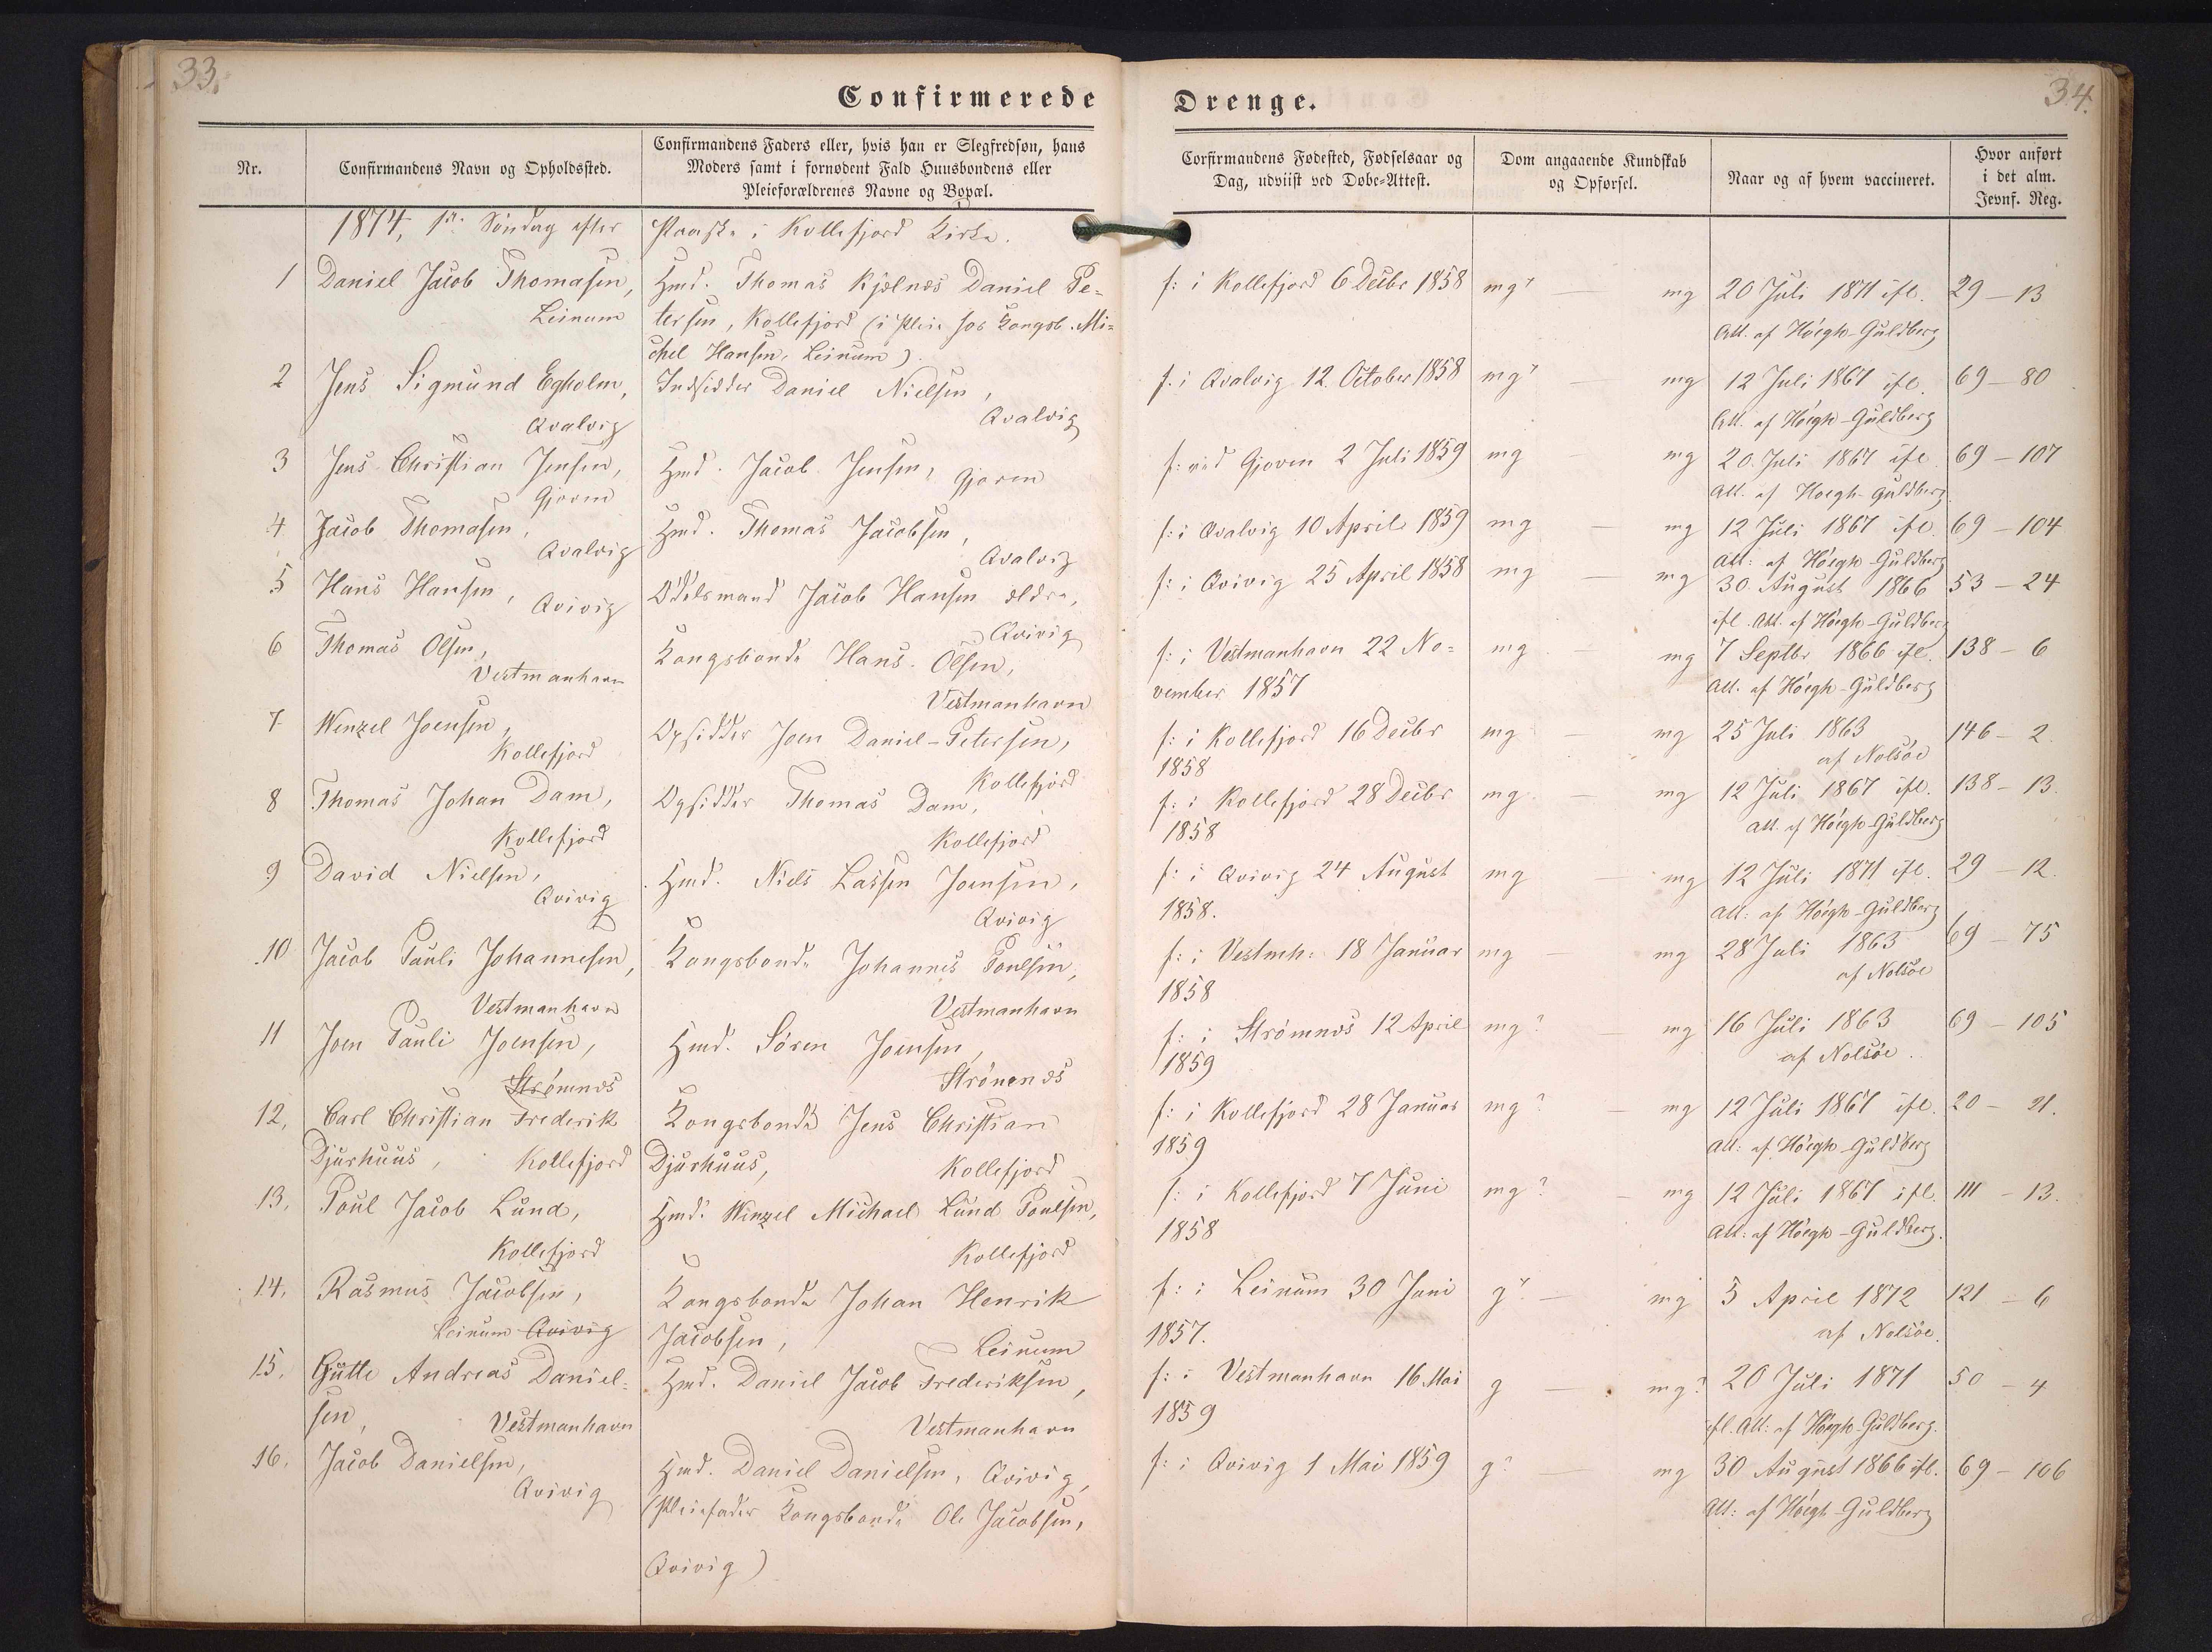 33.
34.
Confirmerede Drenge.
Nr.
Confirmandens Navn og Opholdssted.
Confirmandens Faders eller, hvis han er Slegfredsøn, hans
Moders samt i fornødent Fald Huusbondens eller
Pleieforældrenes Navne og Bopæl.
Corfirmandens Fødested, Fødselsaar og
Dag, udviist ved Døbe-Attest.
Dom angaaende Kundskab
og Opførsel.
Naar og af hvem vaccineret.
Hvor anført
i det alm.
Jevnf. Reg.
1874, 1ste Søndag efter Paaske i Kollefjord Kirke.
1 Daniel Jacob Thomasen, Hmd. Thomas Kjølnæs Daniel Pe- f: i Kollefjord 6 Decbr 1858 mg? — mg 20 Juli 1871 ifl. 29 – 13
Leinum tersen, Kollefjord (i Pleie hos Kongsb. Mi- Att. af Høegh-Guldberg
chel Hansen, Leinum).
2 Jens Sigmund Egholm, Indsidder Daniel Nielsen, f. i Qvalvig 12. October 1858 mg? — mg 12 Juli 1867 ifl. 69 – 80
Qvalvig Qvalvig Att. af Høegh-Guldberg
3 Jens Christian Jensen, Hmd. Jacob Jensen, Gjoven f: ved Gjoven 2 Juli 1859 mg — mg 20. Juli 1867 ifl. 69 – 107
Gjoven Att. af Høegh-Guldberg.
4 Jacob Thomasen, Hmd. Thomas Jacobsen, f: i Qvalvig 10 April 1859 mg — mg 12 Juli 1867 ifl. 69 – 104
Qvalvig Qvalvig Att: af Høegh-Guldberg
5 Hans Hansen, Qvivig Odelsmand Jacob Hansen ældre, f: i Qvivig 25 April 1858 mg — mg 30. August 1866 53 – 24
Qvivig ifl. Att. af Høegh-Guldberg
6 Thomas Olsen, Kongsbonde Hans Olsen, f: i Vestmanhavn 22 No- mg — mg 7 Septbr 1866 ifl. 138 – 6
Vestmanhavn Vestmanhavn vember 1857 Att. af Høegh-Guldberg
7 Wenzel Joensen, Opsidder Joen Daniel-Petersen, f: i Kollefjord 16 Decbr mg — mg 25 Juli 1863 146 – 2.
Kollefjord Kollefjord 1858 af Nolsøe
8 Thomas Johan Dam, Opsidder Thomas Dam, f: i Kollefjord 28 Decbr mg — mg 12 Juli 1867 ifl. 138 – 13.
Kollefjord Kollefjord 1858 Att. af Høegh-Guldberg
9 David Nielsen, Hmd. Niels Lassen Joensen, f: i Qvivig 24 August mg — mg 12 Juli 1871 ifl. 29 – 12.
Qvivig Qvivig 1858. Att: af Høegh-Guldberg
10 Jacob Pauli Johannesen, Kongsbonde Johannes Poulsen, f: i Vestmh: 18 Januar mg — mg 28 Juli 1863 69 – 75
Vestmanhavn Vestmanhavn 1858 af Nolsøe
11 Joen Pauli Joensen, Hmd. Søren Joensen, f: i Strømnæs 12 April mg? — mg 16 Juli 1863 69 – 105
Strømnæs Strømnæs 1859 af Nolsøe.
12. Carl Christian Frederik Kongsbonde Jens Christian f: i Kollefjord 28 Januar mg? — mg 12 Juli 1867 ifl. 20 – 21.
Djurhuus, Kollefjord Djurhuus, Kollefjord 1859 Att: af Høegh-Guldberg
13. Poul Jacob Lund, Hmd. Winzel Michael Lund Poulsen, f: i Kollefjord 7 Juni mg? — mg 12 Juli 1867 ifl. 111 – 13.
Kollefjord Kollefjord 1858 Att: af Høegh-Guldberg.
14. Rasmus Jacobsen, Kongsbonde Johan Henrik f: i Leinum 30 Juni g? — mg 5 April 1872 121 – 6
Leinum Qvivig Jacobsen, Leinum 1857. af Nolsøe.
15. Gutte Andreas Daniel- Hmd. Daniel Jacob Frederiksen, f: i Vestmanhavn 16 Mai g — mg? 20 Juli 1871 50 – 4
sen, Vestmanhavn Vestmanhavn 1859 ifl. Att: af Høegh-Guldberg.
16. Jacob Danielsen, Hmd. Daniel Danielsen, Qvivig, f: i Qvivig 1 Mai 1859 g? — mg 30 August 1866 ifl. 69 – 106
Qvivig (Pleiefader Kongsbonde Ole Jacobsen, Att: af Høegh-Guldberg
Qvivig)